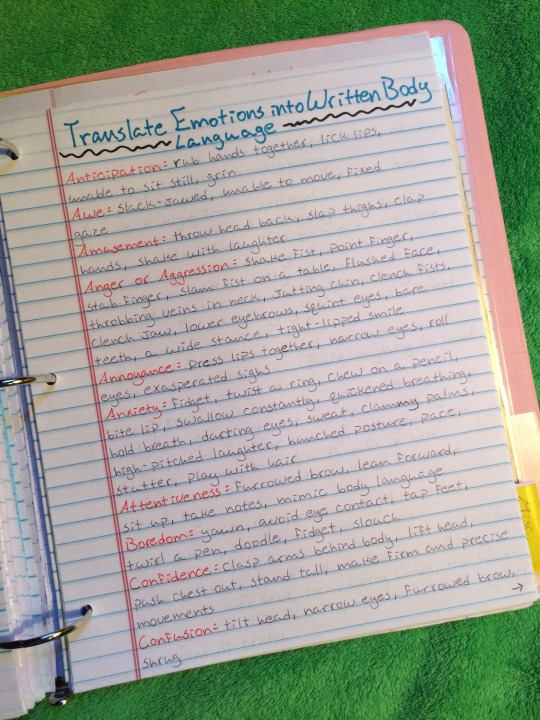 Translate Emotions into Written Body
Language
Anticipation: rub hands together, lick lips,
unable to sit still, grin
Awe: slack-jawed, unable to move, fixed
gaze
Amusement: throw head back, slap thighs, clap
hands, shake with laughter
Anger or Aggression: shake fist, point finger,
stab finger, slam fist on a table, flushed face,
throbbing veins in neck, jutting chin, clench fists,
clench jaw, lower eyebrows, squint eyes, bare
teeth, a wide stance, tight-lipped smile
Annoyance: press lips together, narrow eyes, roll
eyes, exasperated sighs
Anxiety: fidget, twist a ring, chew on a pencil,
bite lip, swallow constantly, quickened breathing,
hold breath, darting eyes, sweat, clammy palms,
high-pitched laughter, hunched posture, pace,
stutter, play with hair
Attentiveness: furrowed brow, lean forward,
sit up, take notes, mimic body language
Boredom: yawn, avoid eye contact, tap feet,
twirl a pen, doodle, fidget, slouch
Confidence: clasp arms behind body, lift head,
push chest out, stand tall, make firm and precise
movements
Confusion: tilt head, narrow eyes, furrowed brow,
shrug →